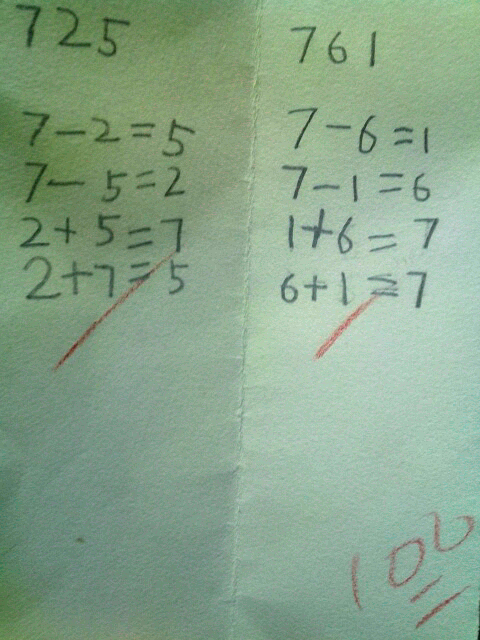 725
7-2=5
7-5=2
2+5=7
2+7=5
761
7-6=1
7-1=6
1+6=7
6+1=7
100